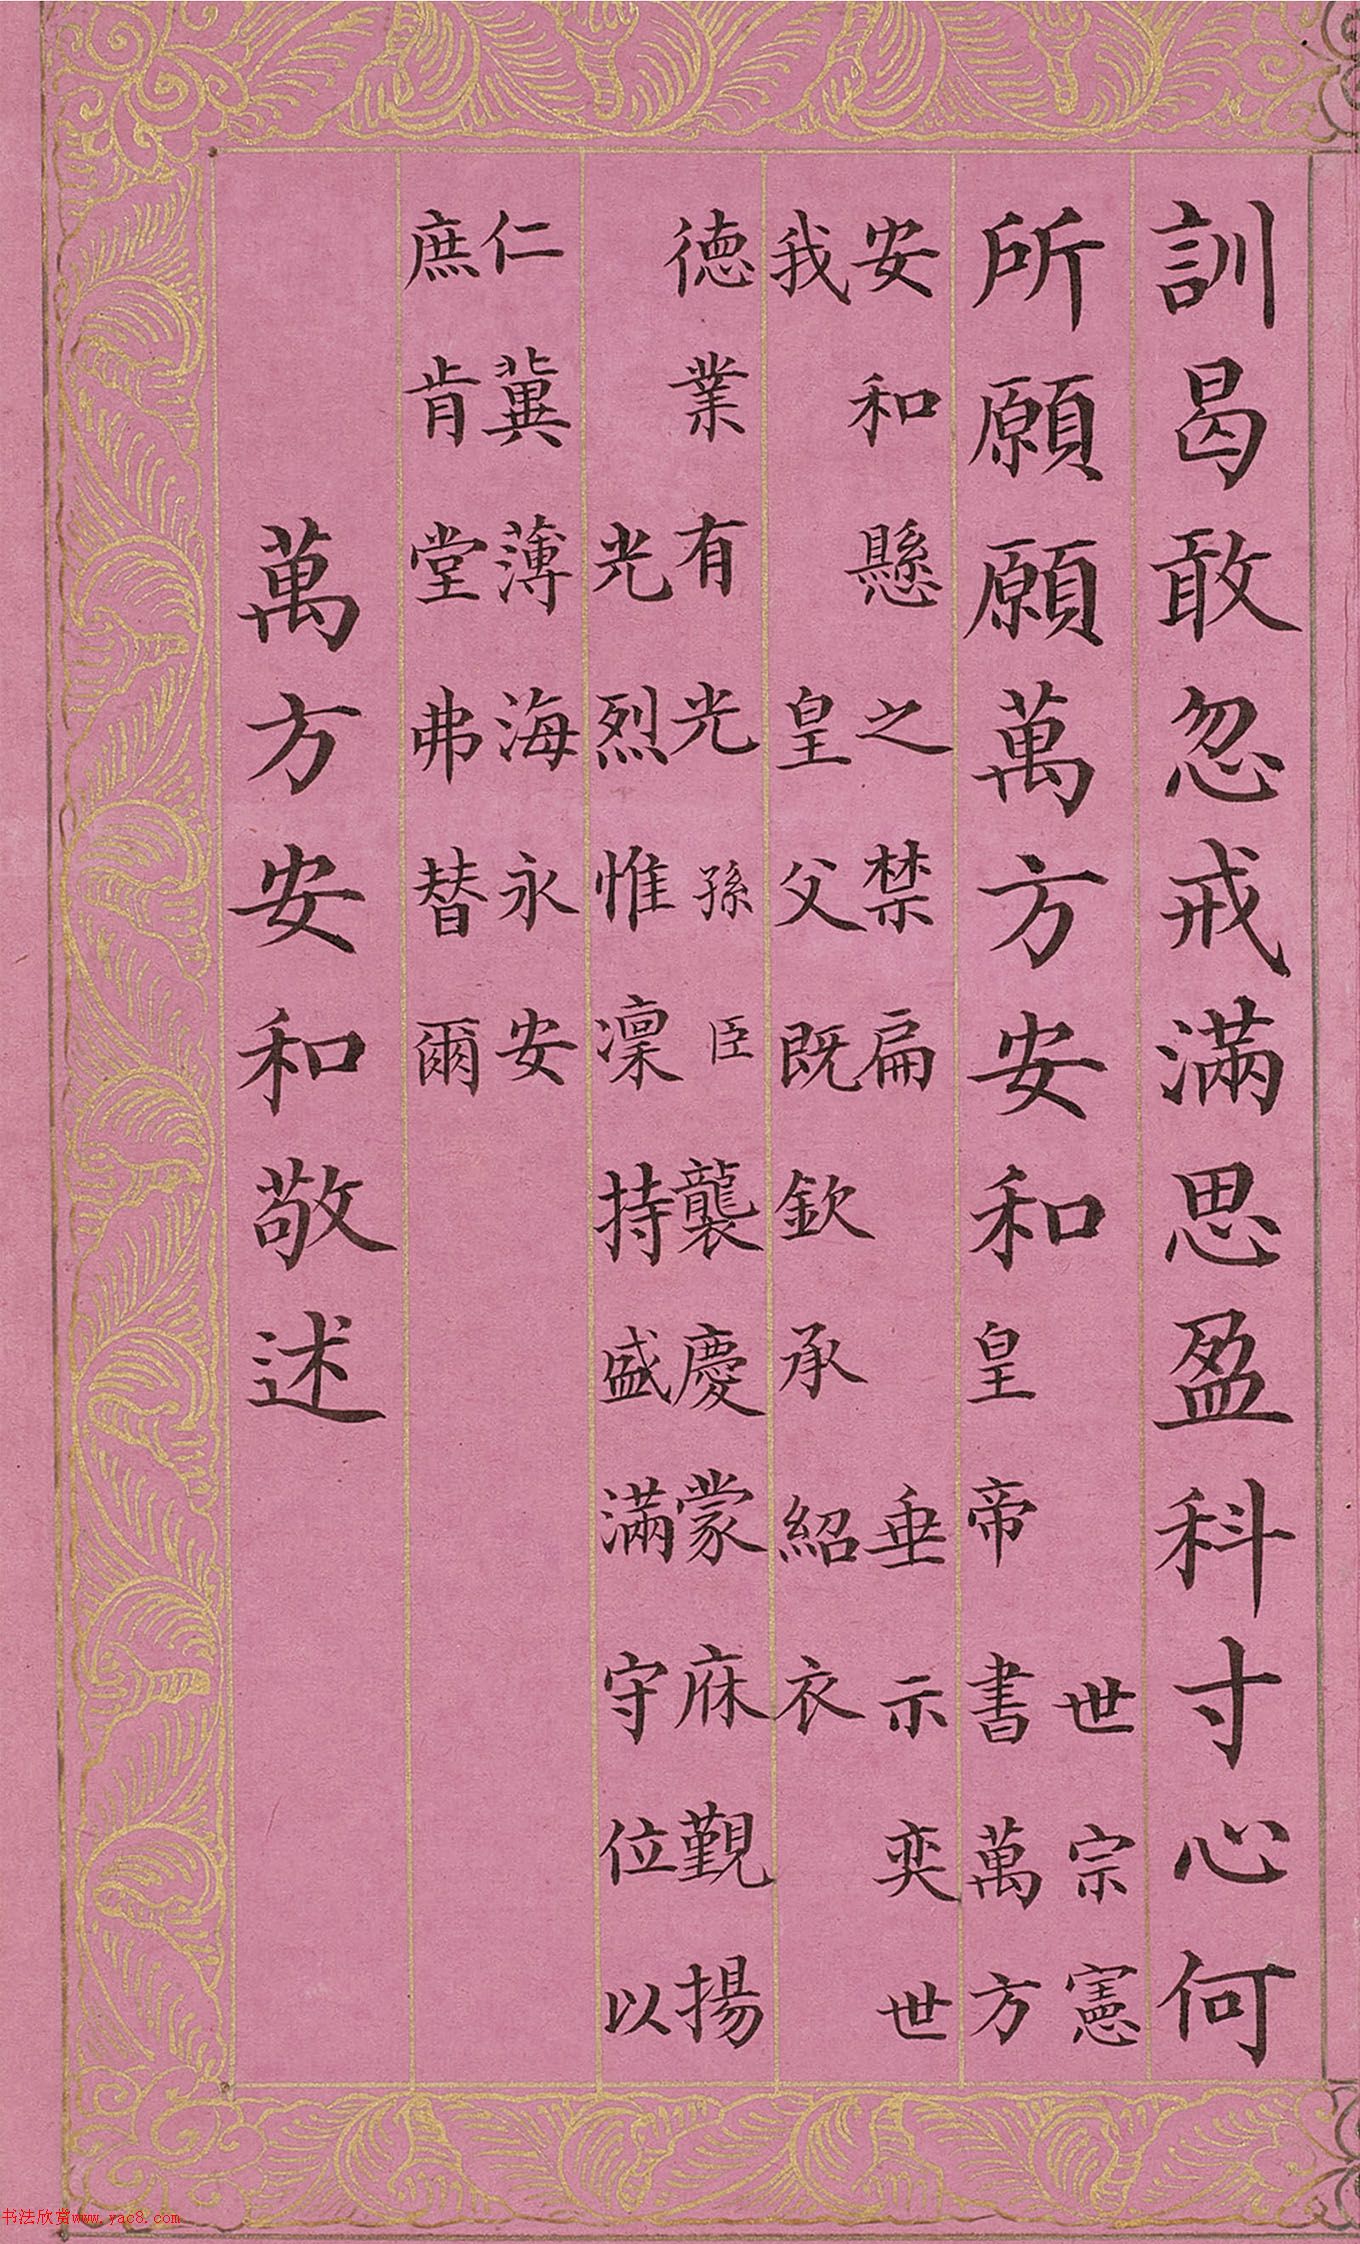 訓曷敢忽戒滿思盈科寸心何
所願願萬方安和
世宗憲
皇帝書萬方
安和懸之禁扁垂示奕世
我皇父既欽承紹衣
德業有光孫臣襲慶蒙庥覲揚
光烈惟凜持盛滿守位以
仁冀薄海永安
庶肯堂弗替爾
萬方安和敬述
书法欣赏www.yac8.com